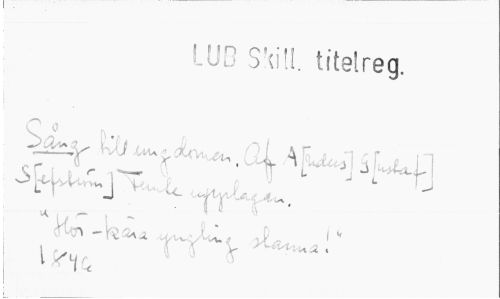 LUB Skill. titelreg.
Sång till ungdomen. Af A[nders] G[ustaf]
S[efström] Femte upplagan.
"Hör-kära yngling stanna!"
184